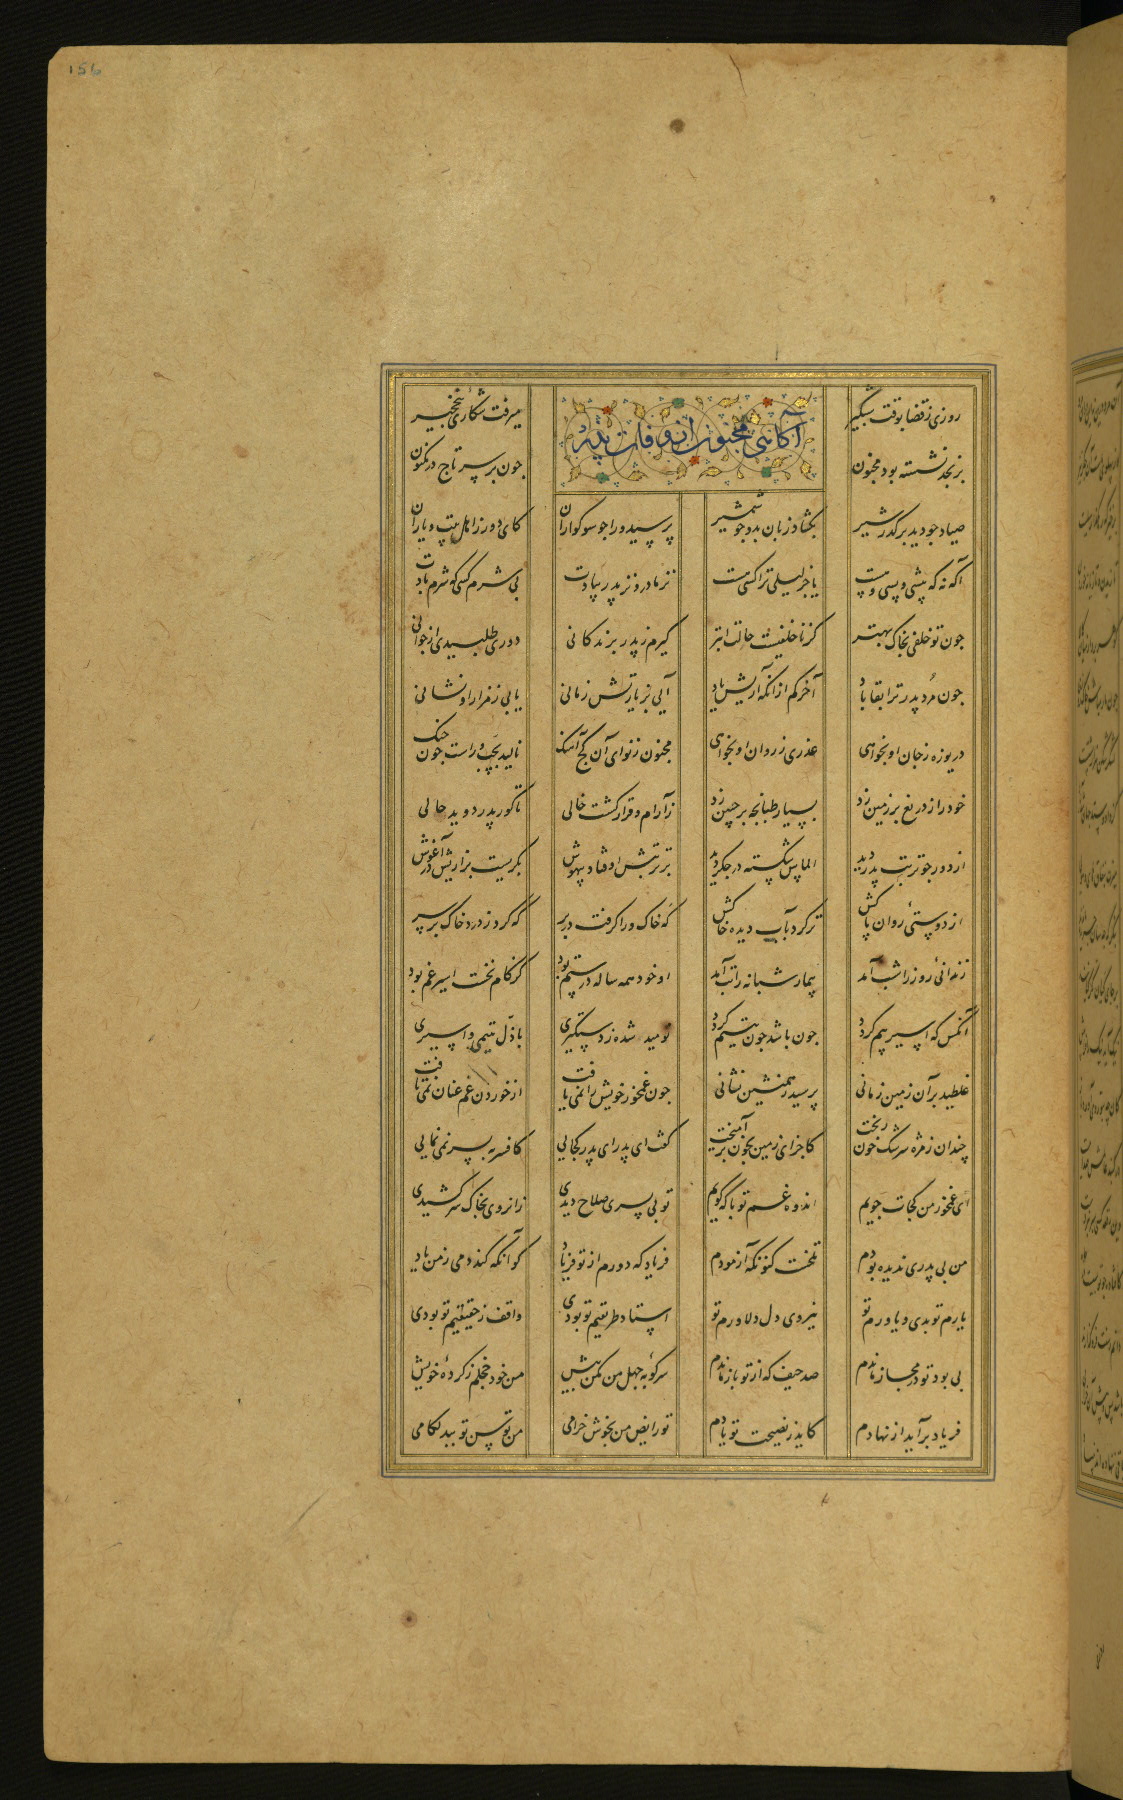 156
روزی ز قضا بوقت شبگیر
میرفت شکاری بنخجیر
آگاهی مجنون از وفات پدر
بر نجد نشسته بود مجنون
چون بر سر تاج در مکنون
صیاد چو دید بر گذر شیر
بگشاد زبان بدو چو شمشیر
پرسید ورا چو سوکواران
کای دور ز اهل بیت و یاران
اگه نه که پیشی و پسی هست
یا جز لیلی ترا کسی هست
نز مادر و نز پدر بیادت
بی شرم کسی که شرم بادت
چون تو خلفی بخاک بهتر
کز ناخلفیست حالت ابتر
گیرم ز پدر بزندگانی
دوری طلبیدی از جوانی
چون مرد پدر ترا بقا باد
آخر کم از آنکه آریش یاد
آیی بزیارتش زمانی
یابی ز مزار او نشانی
دریوزه ز جان او بخواهی
عذری ز روان او بخواهی
مجنون ز نوای آن کج آهنگ
نالید بچپ و راست چون چنگ
خود را ز دریغ بر زمین زد
بسیار طبانچه بر جبین زد
ز آرام و قرار گشت خالی
تا گور پدر دوید حالی
از دور چو تربت پدر دید
الماس شکسته در جگر دید
بر تربتش اوفتاد بیهوش
بگریست بزاریش در آغوش
از دوستی روان پاکش
تر کرد بآب دیده خاکش
که خاک ورا گرفت در بر
که کرد ز درد خاک بر سر
زندانی روز را شب آمد
بیمار شبانه را تب آمد
او خود همه ساله در ستم بود
کز گام نخست اسیر غم بود
آنکس که اسیر بیم گردد
چون باشد چون یتیم گردد
نومید شده ز دستگیری
با ذل یتیمی و اسیری
غلطید بر آن زمین زمانی
پرسید ز همنشین نشانی
چون غمخور خویش را نمی یافت
از خوردن غم عنان نمی تافت
چندان ز مژه سرشک خون ریخت
کاجزای زمین بخون بر آمیخت
گفت ای پدر ای پدر کجایی
کافسر به پسر نمی نمایی
ای غمخور من کجات جویم
اندوه غم تو با که گویم
تو بی پسری صلاح دیدی
زانروی بخاک سر کشیدی
من بی پدری ندیده بودم
تلخست کنونکه آزمودم
فریاد که دورم از تو فریاد
گو آنکه کند دمی ز من یاد
یارم تو بدی و یاورم تو
نیروی دل دلاورم تو
استاد طریقتم تو بودی
واقف ز حقیقتم تو بودی
بی بود تو در مجاز ماندم
صد حیف که از تو باز ماندم
سرکوبه جهل من مکن بیش
من خود خجلم ز کرده خویش
فریاد بر آید از نهادم
کاید ز نصیحت تو یادم
تو رایض من بخوش خرامی
من توسن تو ببدلگامی